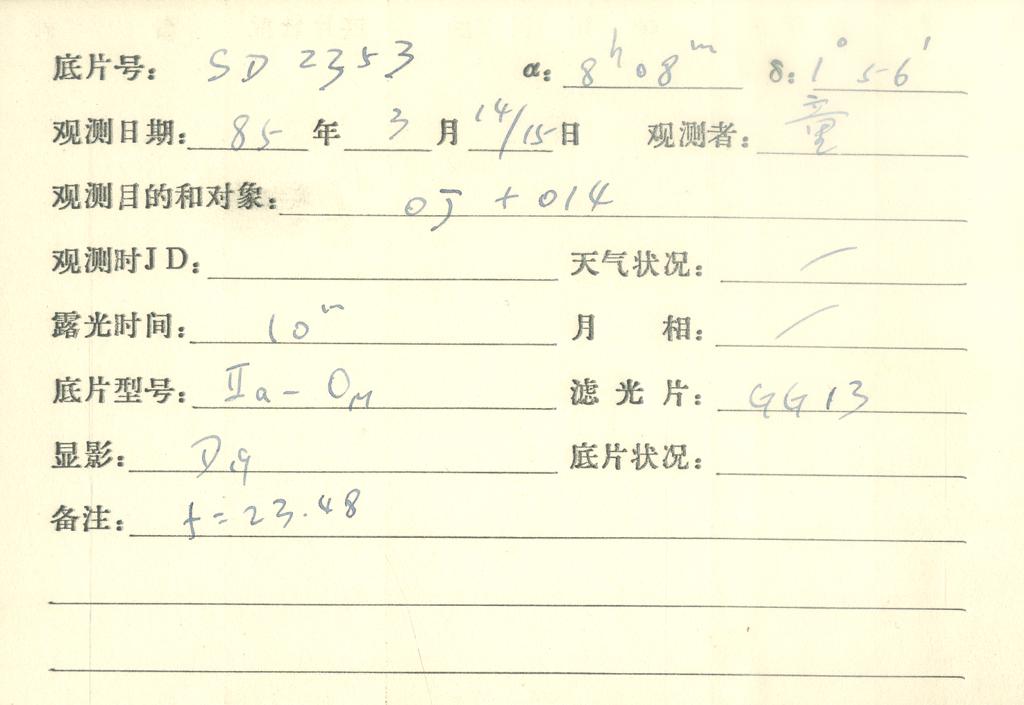 底片号: SD 2353 α: 8h08m δ: 1° 56′
观测日期: 85 年 3 月 14/15 日 观测者: 童
观测目的和对象: OJ + 014
观测时JD: 天气状况: /
露光时间: 10m 月 相: /
底片型号: IIa-OM 滤光片: GG13
显影: D19 底片状况:
备注: t=23.48